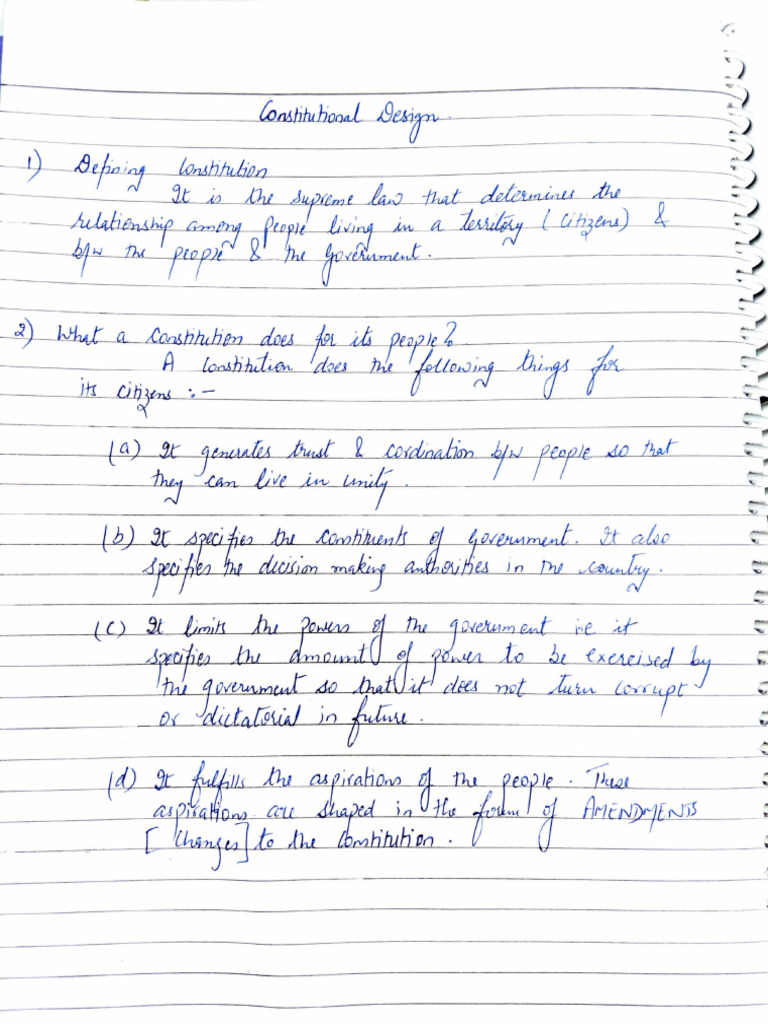 Constitutional Design.
1) Defining Constitution
It is the supreme law that determines the
relationship among people living in a territory (Citizens) &
b/w the people & the Government.
2) What a Constitution does for its people?
A Constitution does the following things for
its citizens :-
(a) It generates trust & cordination b/w people so that
they can live in unity.
(b) It specifies the constituents of Government. It also
specifies the decision making authorities in the country.
(c) It limits the powers of the government i.e it
specifies the amount of power to be exercised by
the government so that it does not turn corrupt
or dictatorial in future.
(d) It fulfills the aspirations of the people. These
aspirations are shaped in the form of AMENDMENTS
[Changes] to the Constitution.